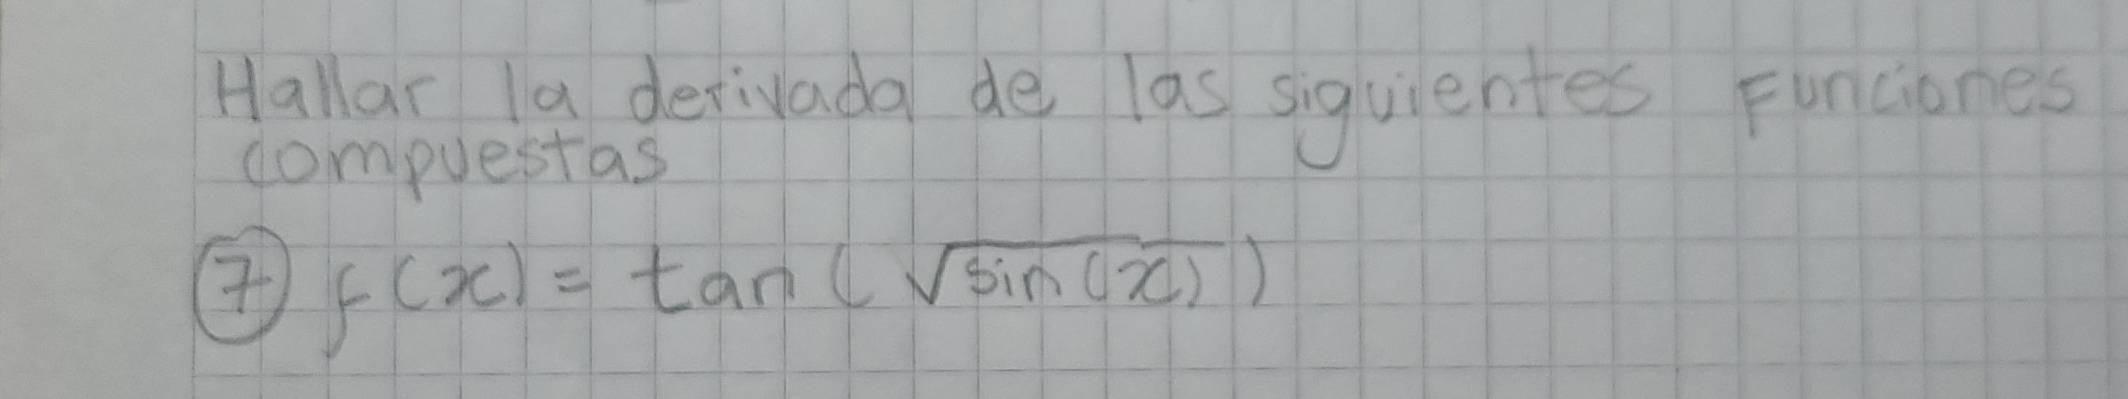 Hallar la derivada de las siguientes Funciones
compuestas
⑦ f(x) = tan(√sin(x))